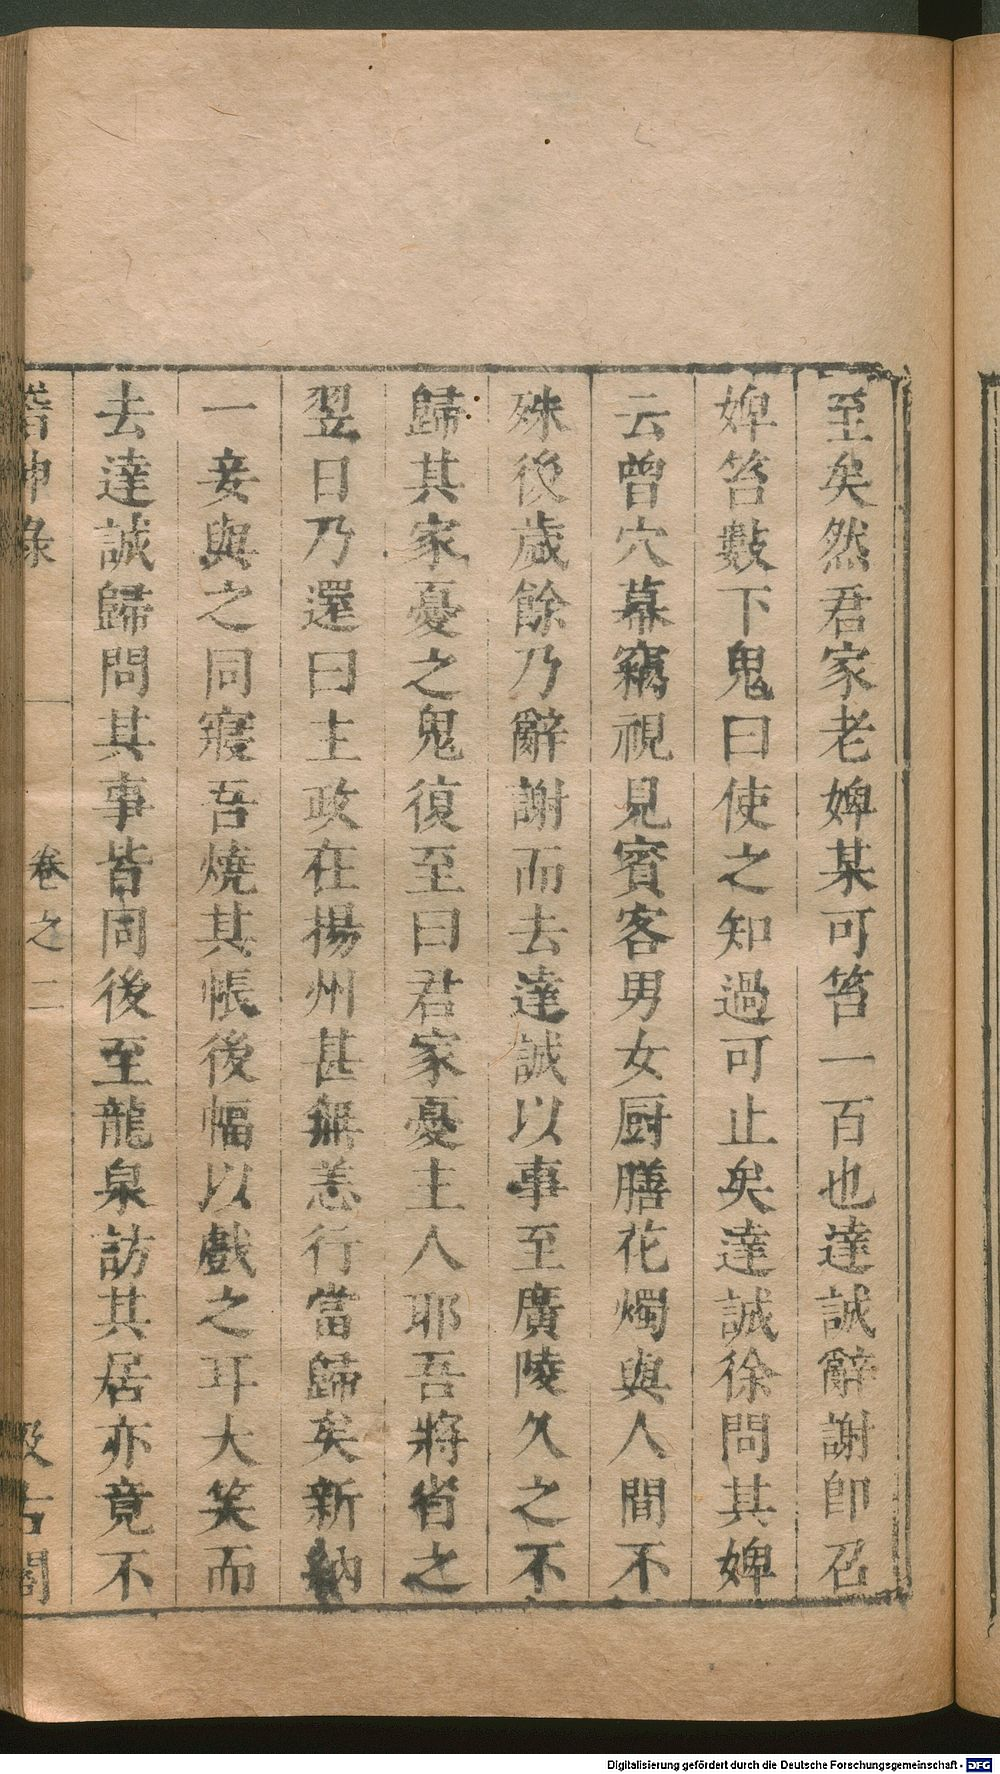 至矣然君家老婢某可笞一百也達誠辭謝即召
婢笞數下鬼曰使之知過可止矣達誠徐問其婢
云曾穴幕竊視見賓客男女厨膳花燭與人間不
殊後歲餘乃辭謝而去達誠以事至廣陵久之不
歸其家憂之鬼復至曰君家憂主人耶吾將省之
翌日乃還曰主政在揚州甚無恙行當歸矣新納
一妾與之同寢吾燒其帳後幅以戲之耳大笑而
去達誠歸問其事皆同後至龍泉訪其居亦竟不
稽神錄
卷之二
汲古閣
Digitalisierung gefördert durch die Deutsche Forschungsgemeinschaft - DFG